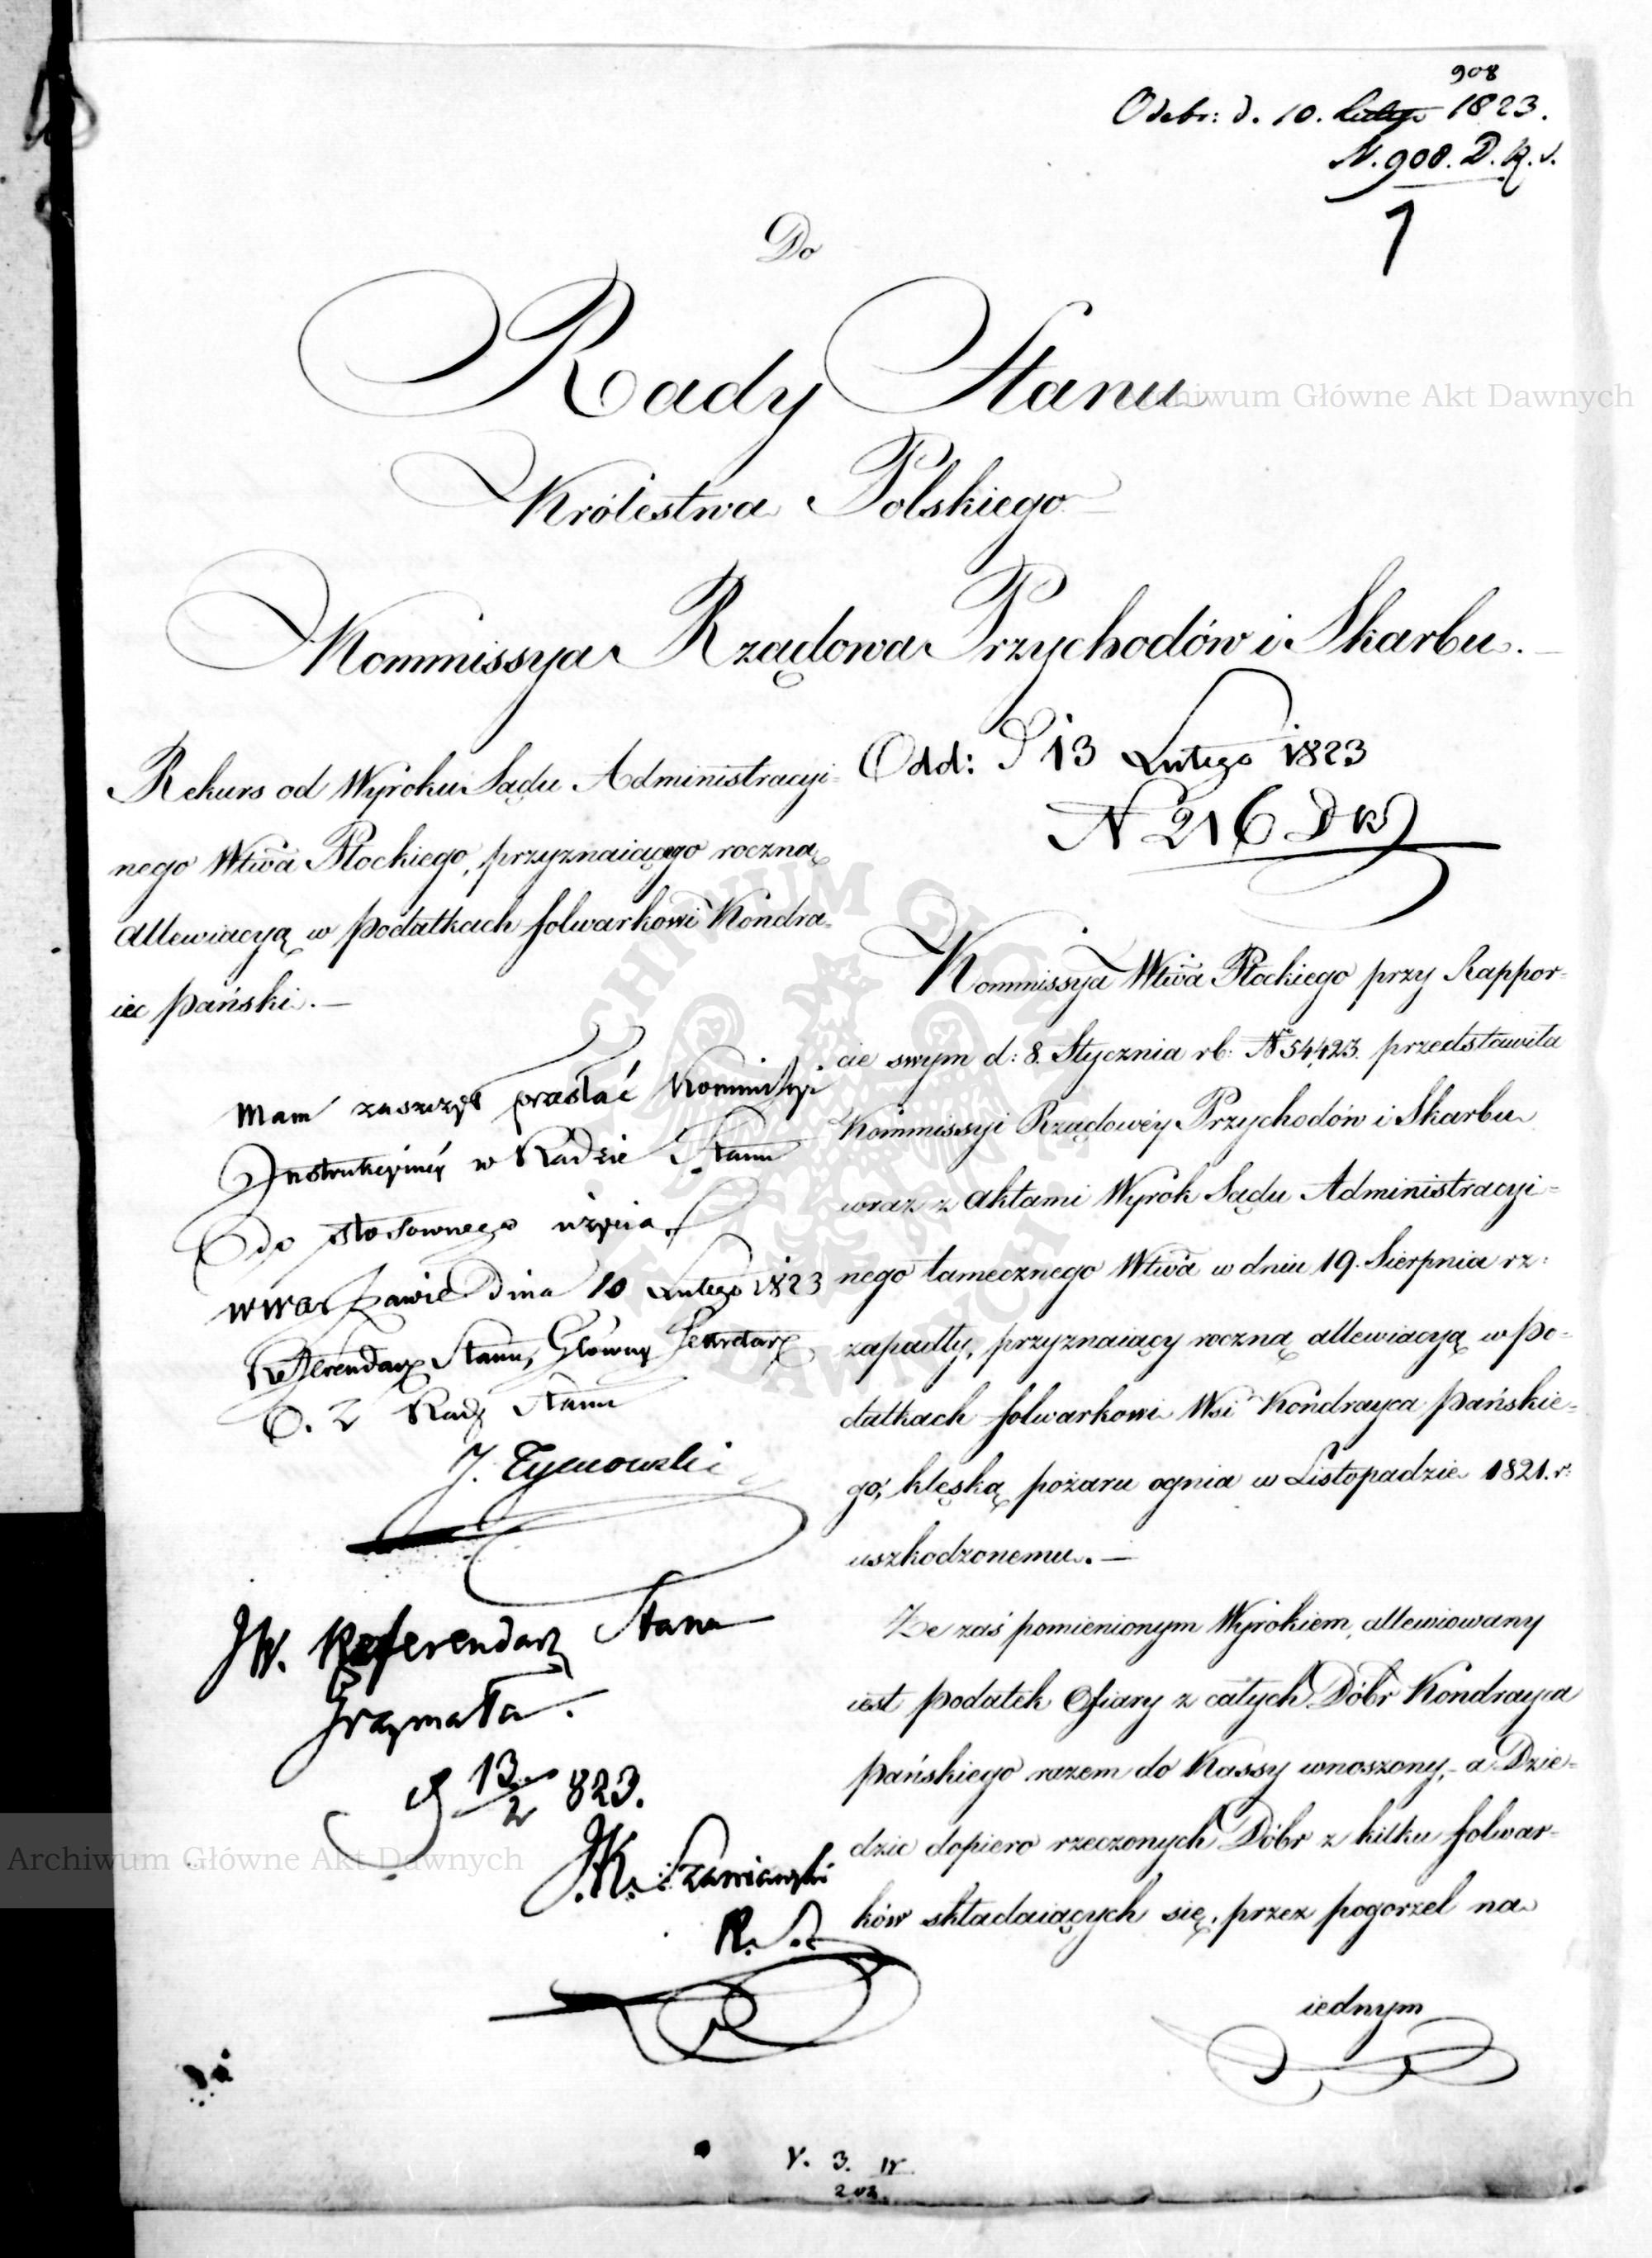 908
Odebr: d. 10. Lutego 1823.
N. 908. D. R. S.
1
Do
Rady Stanu
Królestwa Polskiego
Kommissya Rządowa Przychodów i Skarbu.
Rekurs od Wyroku Sądu Administracyi-
nego Wtwa Płockiego, przyznaiącego roczną
allewiacyą w podatkach folwarkowi Kondra-
iec pański.
Odd: d 13 Lutego 1823
N 216 D K
Mam zaszczyt przesłać Kommissyi
Instrukcyinéy w Radzie Stanu
do stosownego użycia
w Warszawie Dnia 10 Lutego 1823
Referendarz Stanu, Główny Sekretarz
O. Z Rady Stanu
J. Tymowski
JW. Referendarz Stanu
Grzymała.
d 13/2 823.
J.K. Szaniawski
R. S.
Kommissya Wtwa Płockiego przy Rappor-
cie swym d: 8. Stycznia rb: No 54,423. przedstawiła
Kommissyi Rządowéy Przychodów i Skarbu
wraz z aktami Wyrok Sądu Administracyi-
nego tamecznego Wtwa w dniu 19. Sierpnia rz:
zapadły, przyznaiący roczną allewiacyą w po-
datkach folwarkowi Wsi Kondrayca pańskie-
go, klęską pożaru ognia w Listopadzie 1821. r:
uszkodzonemu.
Ze zaś pomienionym Wyrokiem, allewiowany
iest podatek Ofiary z całych Dóbr Kondrayca
pańskiego razem do Kassy wnoszony, a Dzie-
dzic dopiero rzeczonych Dóbr z kilku folwar-
ków składaiących się, przez pogorzel na
iednym
V. 3. IV
202.
Archiwum Główne Akt Dawnych
Archiwum Główne Akt Dawnych
ARCHIWUM GŁÓWNE AKT DAWNYCH